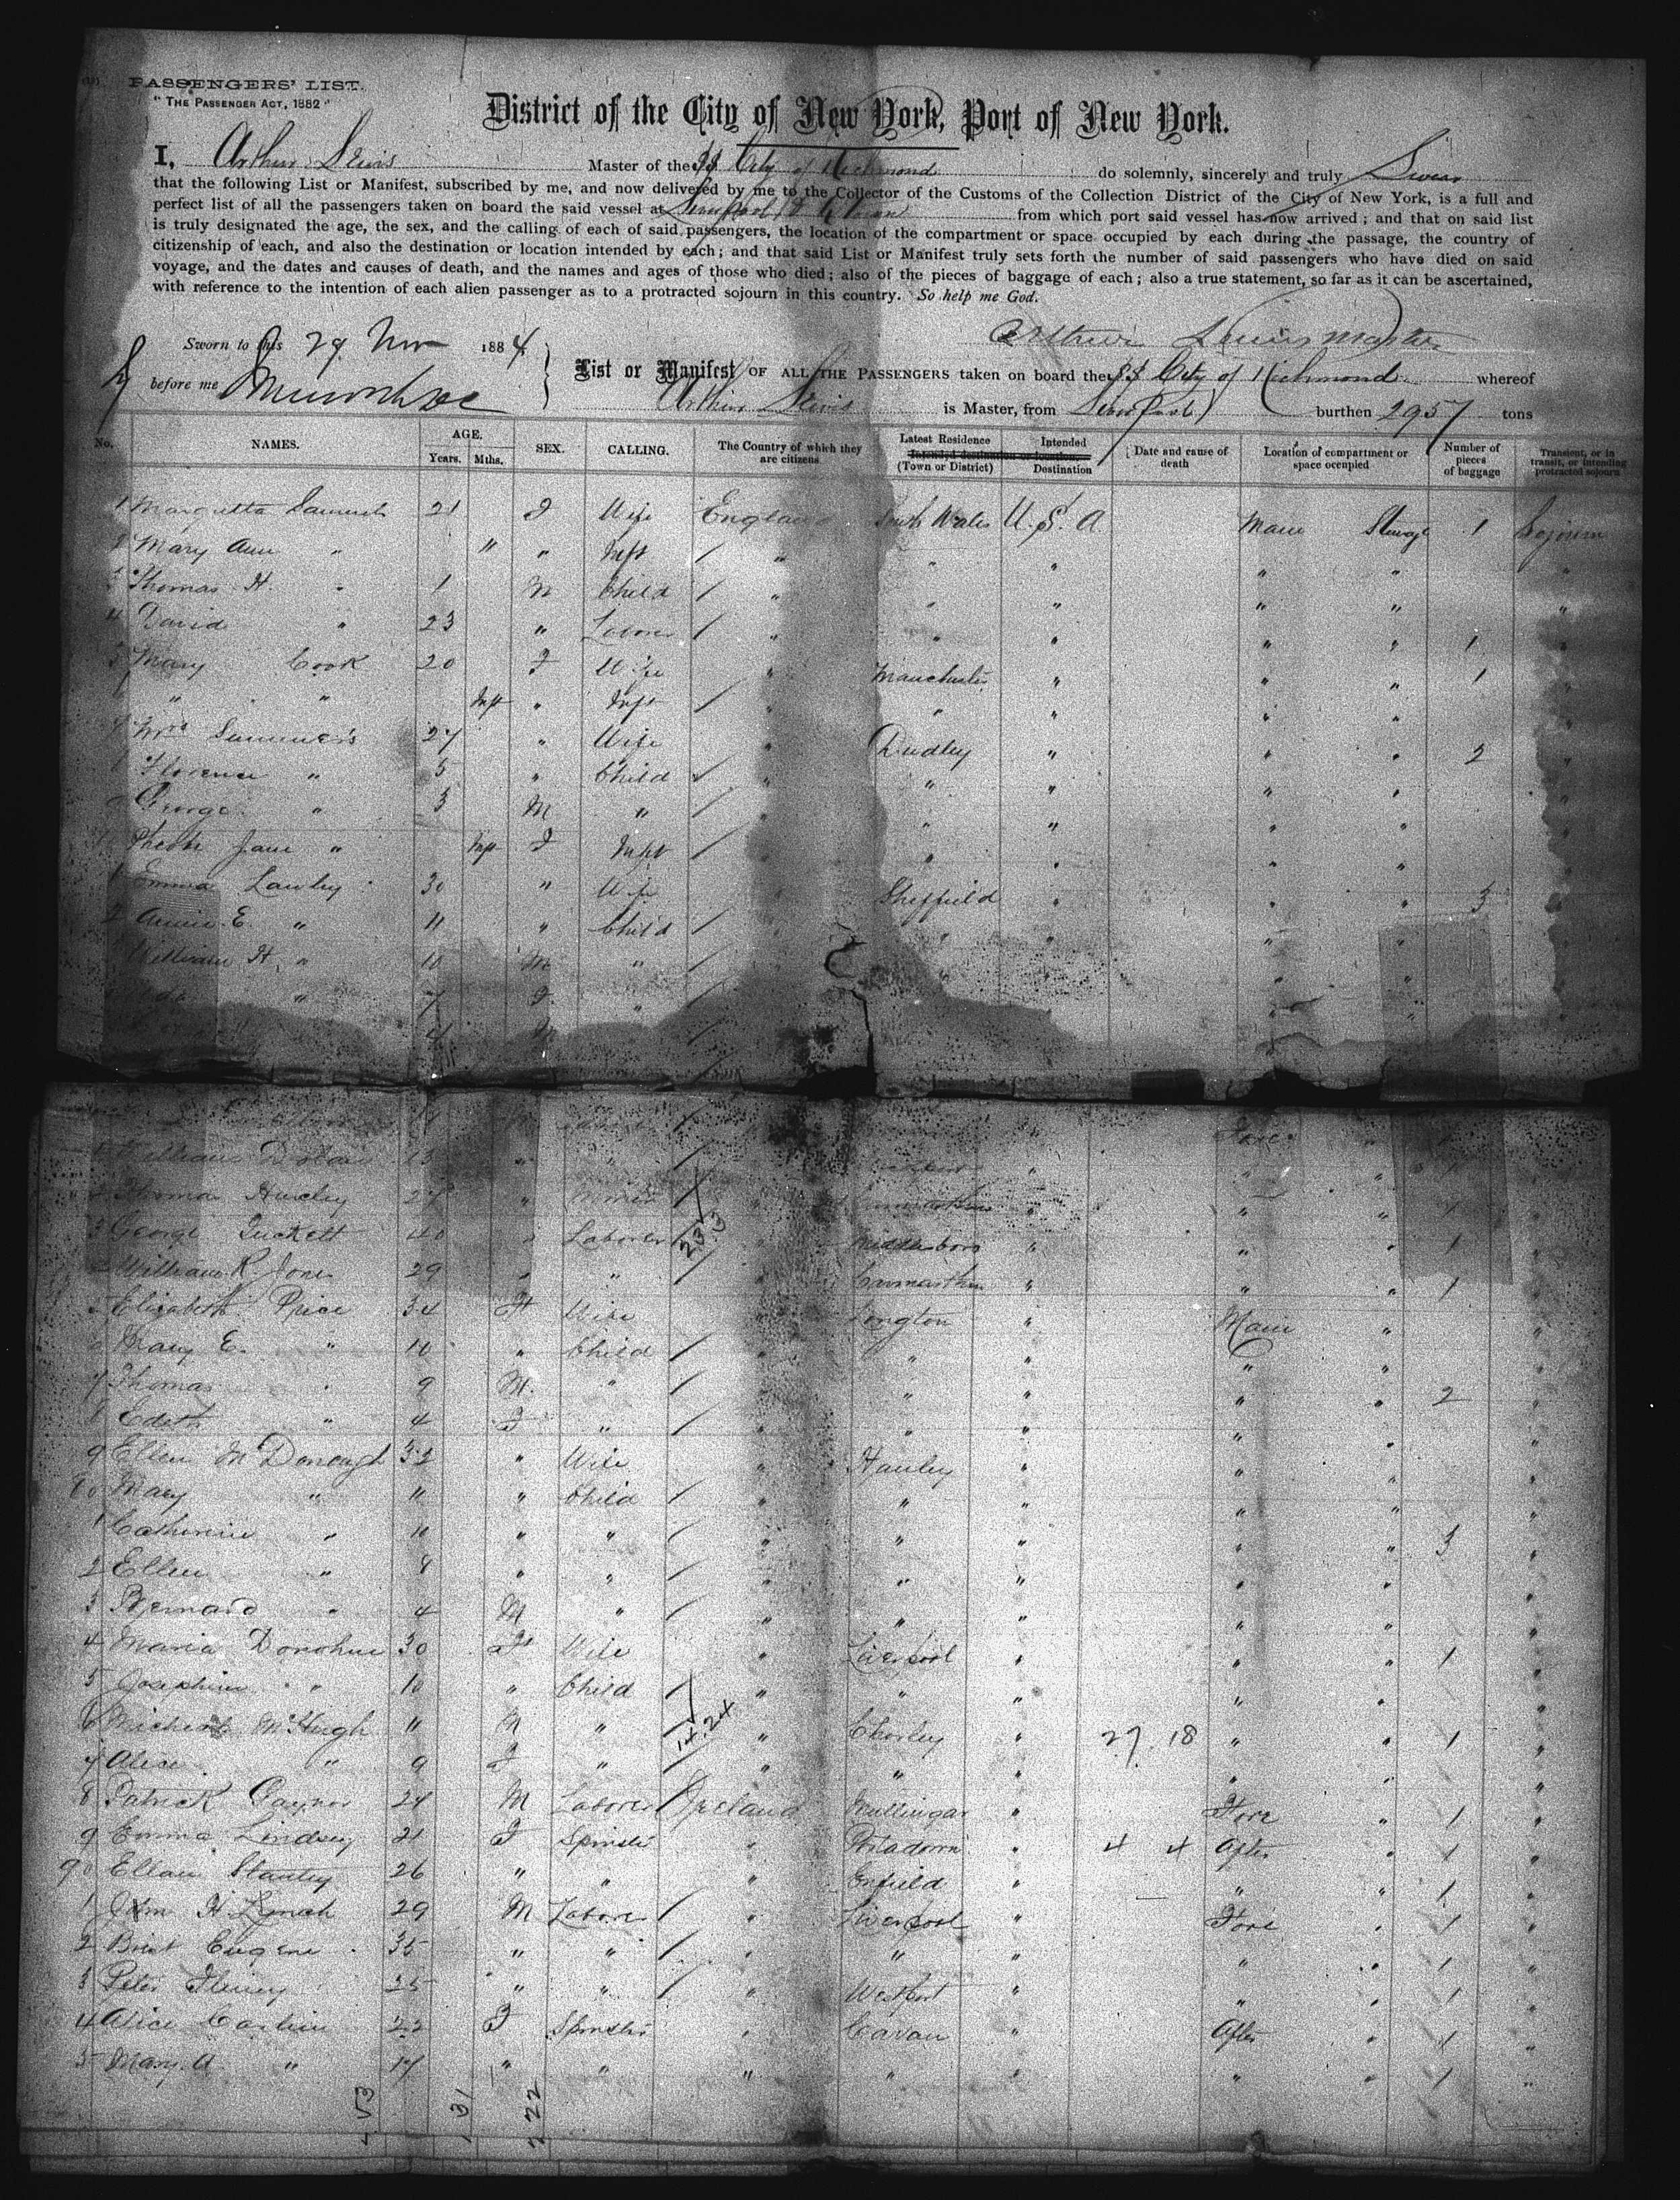 PASSENGERS' LIST.
"THE PASSENGER ACT, 1882"
District of the City of New York, Port of New York.
I, Arthur Lewis Master of the SS City of Richmond do solemnly, sincerely and truly Swear
that the following List or Manifest, subscribed by me, and now delivered by me to the Collector of the Customs of the Collection District of the City of New York, is a full and
perfect list of all the passengers taken on board the said vessel at Liverpool from which port said vessel has now arrived; and that on said list
is truly designated the age, the sex, and the calling of each of said passengers, the location of the compartment or space occupied by each during the passage, the country of
citizenship of each, and also the destination or location intended by each; and that said List or Manifest truly sets forth the number of said passengers who have died on said
voyage, and the dates and causes of death, and the names and ages of those who died; also of the pieces of baggage of each; also a true statement, so far as it can be ascertained,
with reference to the intention of each alien passenger as to a protracted sojourn in this country. So help me God.
Arthur Lewis Master
Sworn to this 29 Nov 1884
before me
List or Manifest OF ALL THE PASSENGERS taken on board the SS City of Richmond whereof
Arthur Lewis is Master, from Liverpool burthen 2957 tons
No. NAMES. AGE. Years. Mths. SEX. CALLING. The Country of which they are citizens Latest Residence Intended destination or location. (Town or District) Intended Destination Date and cause of death Location of compartment or space occupied Number of pieces of baggage Transient, or in transit, or intending protracted sojourn
1 Margretta Samuel 21 F Wife England South Wales U.S.A Main Steerage 1 Sojourn
2 Mary Ann " " " Inft / " " " " " "
3 Thomas H. " 1 M Child / " " " " " "
4 David " 23 " Laborer / " " " " " 1 "
5 Mary Cook 20 F Wife " Manchester " " " 1 "
6 " " Inft " Inft / " " " " " "
7 Mrs Summers 27 " Wife " Dudley " " " 2 "
8 Florence " 5 " Child / " " " " " "
9 George " 3 M " / " " " " " "
Phebe Jane " Inft F Inft / " " " " " "
1 Emma Lawley 30 " Wife Sheffield " " 3
2 Annie E " 11 " Child / " " " "
William H. " 10 M " / " "
" 7 F " / " "
4 M / "
Fore
William Dolan " " / " " 1 "
Thomas Huxley 27 " / " " " 1 "
3 George Tuckett 40 " Laborer / 233 " Middlesboro " " " 1 "
William R Jones 29 " " / " Carmarthen " " " 1 "
5 Elizabeth Price 34 F Wife Longton " Main " "
6 Mary E. " 10 " Child / " " " " " "
7 Thomas " 9 M. " / " " " " " 2 "
8 Edith " 4 F " / " " " " " "
9 Ellen McDonough 32 " Wife " Hanley " " " "
80 Mary " 11 " Child / " " " " " "
1 Catherine " 10 " " / " " " " " 3 "
2 Ellen " 8 " " / " " " " " "
3 Bernard " 4 M " / " " " " " "
4 Maria Donohue 30 F Wife " Liverpool " " " 1 "
5 Josephine " 10 " Child / " " " " " "
6 Michael McHugh 11 M " / 14.24 " Chorley " 27. 18 " " 1 "
7 Alice " 9 F " / " " " " " "
8 Patrick Gaynor 24 M Laborer Ireland Mullingar " Fore " 1 "
9 Emma Lindsey 21 F Spinster " Portadown " 4 4 After " 1 "
90 Ellen Stanley 26 " " " Enfield " " " 1 "
1 John H Lynch 29 M Laborer / " Liverpool " Fore " 1 "
2 Brist Eugene 35 " " / " " " " " 1 "
3 Peter 25 " " / " Westport " " " 1 "
4 Alice 22 F Spinster " Cavan " After " 1 "
5 Mary A " 17 " " " " " " " 1 "
53
31
22